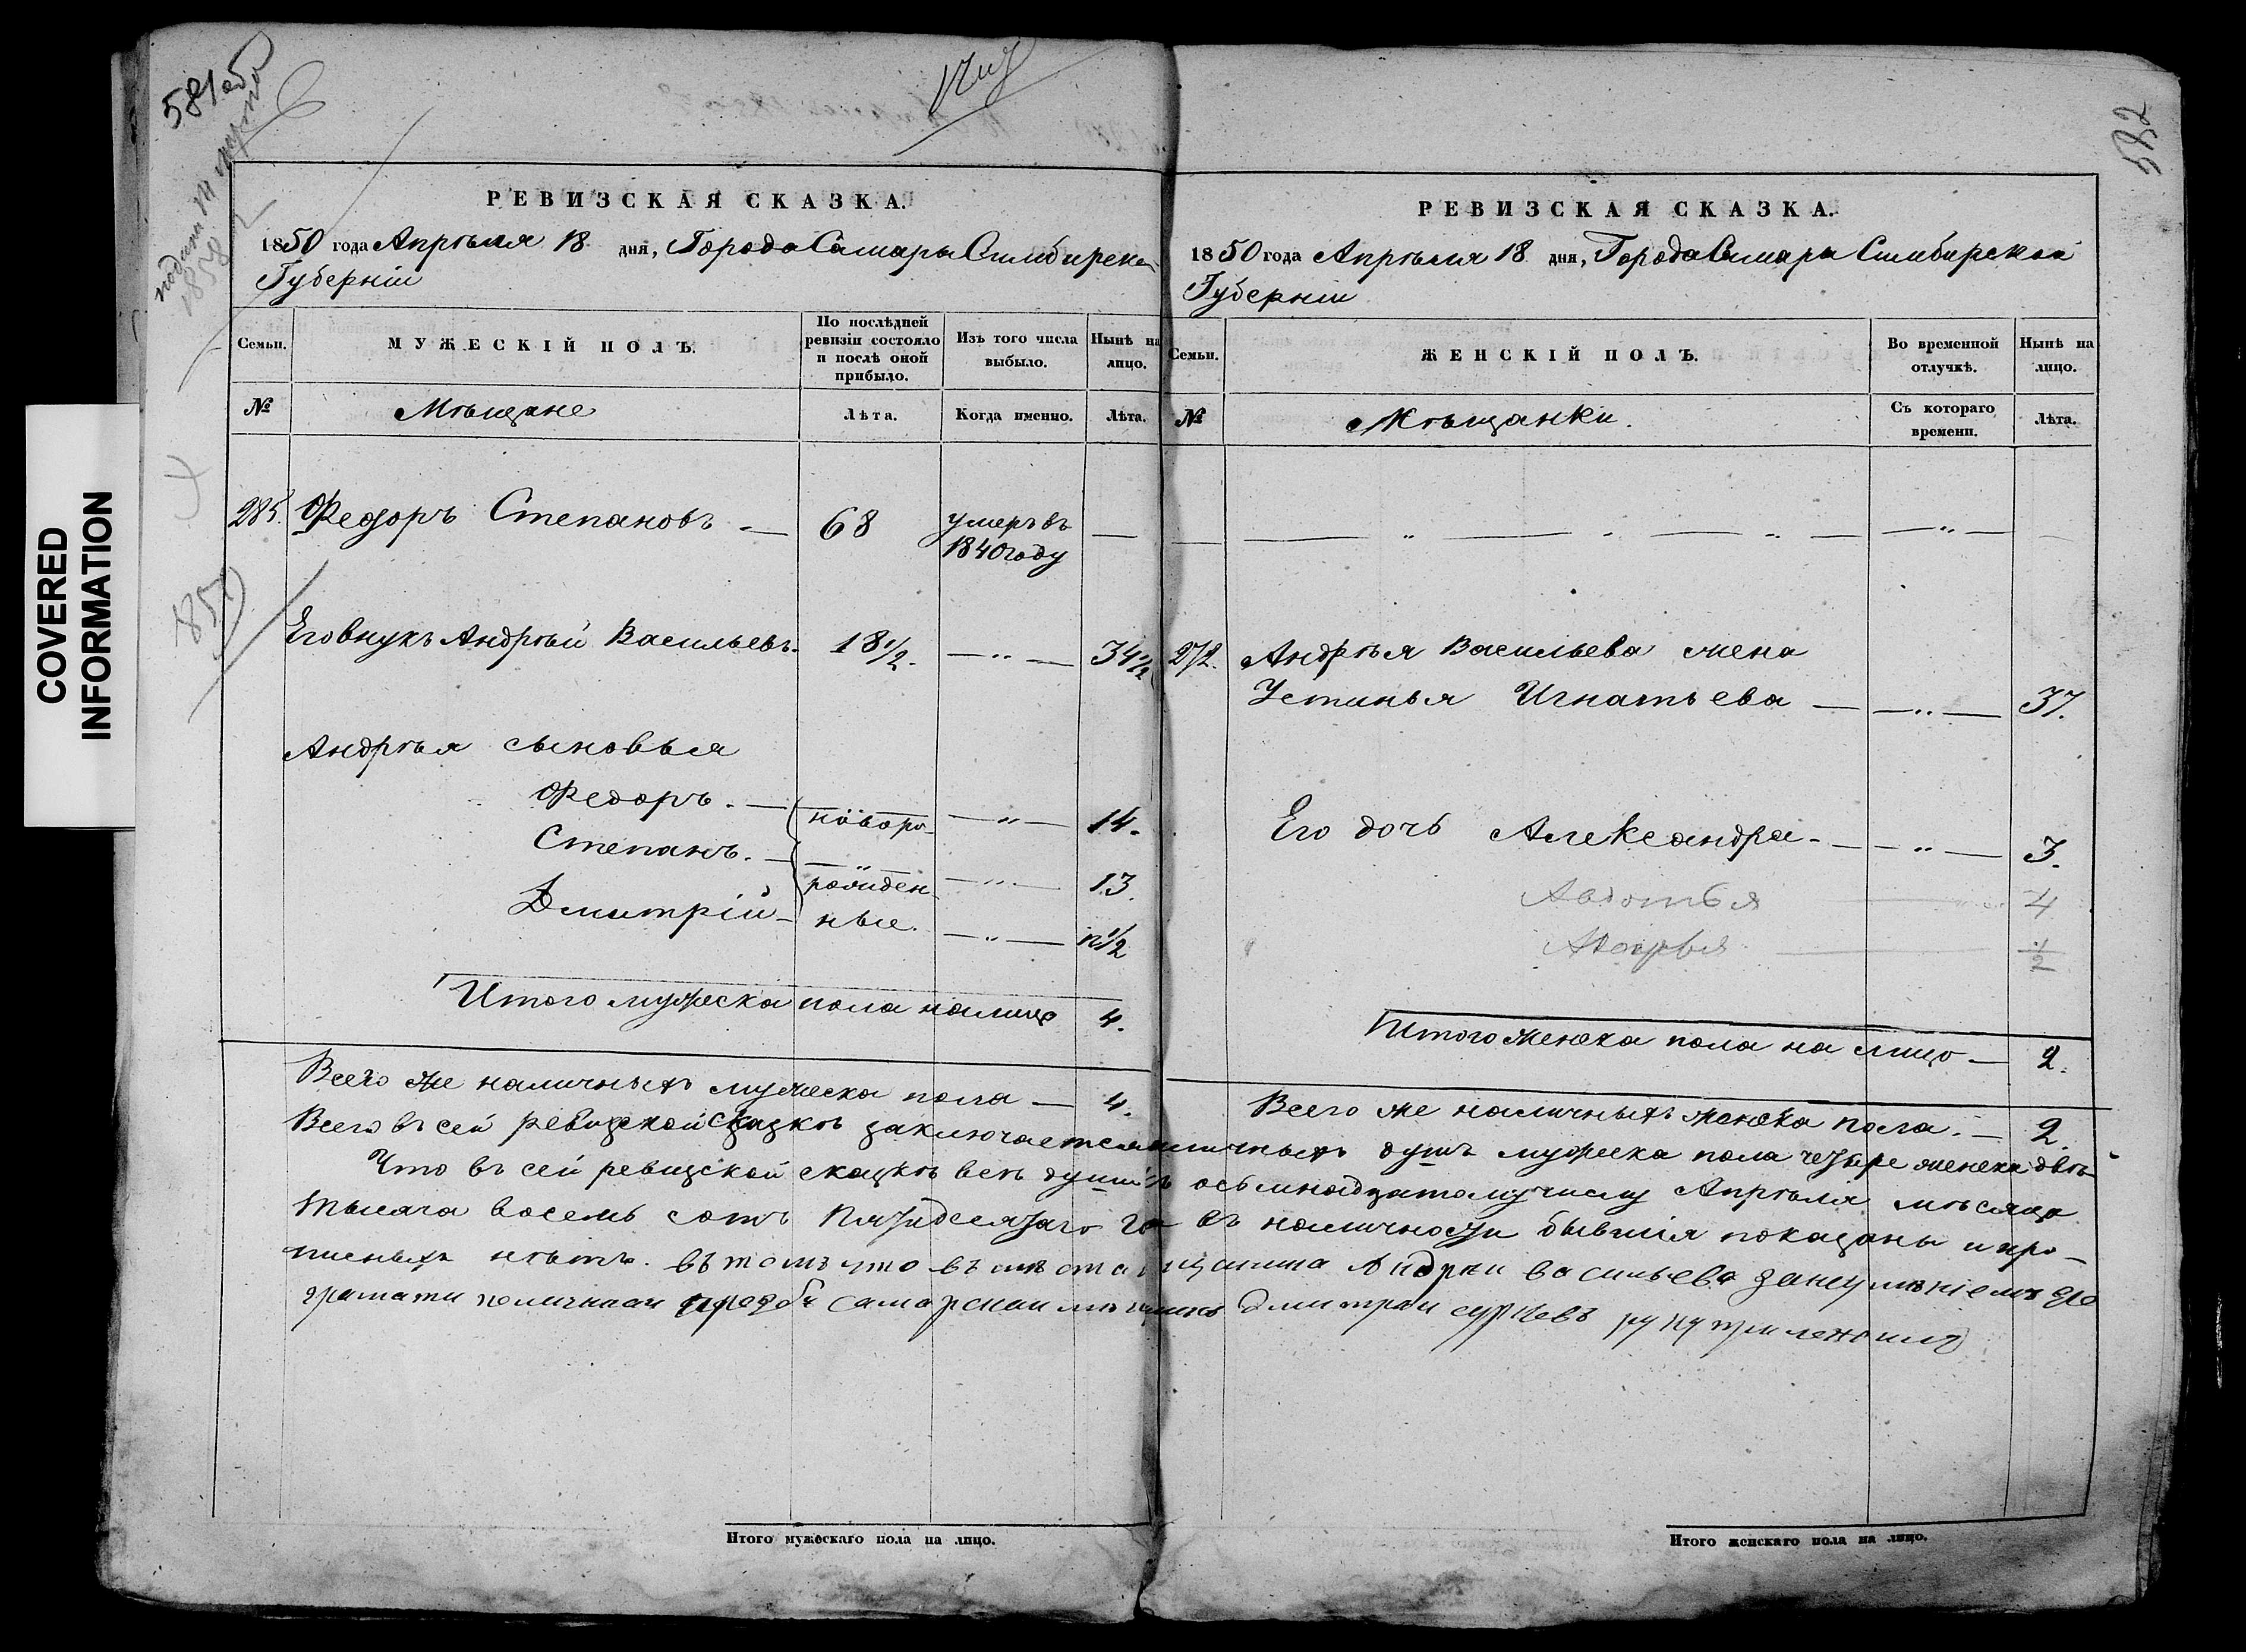 581 об
582
1858
COVERED
INFORMATION
РЕВИЗСКАЯ СКАЗКА.
1850 года Апрѣля 18 дня, Города Самары Симбирской
Губерніи
Семьи.
МУЖЕСКІЙ ПОЛЪ.
По послѣдней
ревизіи состояло
и послѣ оной
прибыло.
Изъ того числа
выбыло.
Нынѣ на
лицо.
№
Мѣщане
Лѣта.
Когда именно.
Лѣта.
285. Федоръ Степановъ — 68 умеръ въ —
1840 году
Его внукъ Андрѣй Васильевъ. 18 1/2. — „ — 34 1/2
Андрѣя сыновья
Федоръ. — новоро- — „ — 14.
Степанъ. — — „ — 13.
рожден-
Дмитрій — ные. — „ — 1/2
Итого мужеска пола налицо 4.
Всего же наличныхъ мужеска пола — 4.
РЕВИЗСКАЯ СКАЗКА.
1850 года Апрѣля 18 дня, Города Самары Симбирской
Губерніи
Семьи.
ЖЕНСКІЙ ПОЛЪ.
Во временной
отлучкѣ.
Нынѣ на
лицо.
№
Мѣщанки.
Съ котораго
времени.
Лѣта.
— — „ — „ — „ — — „ — —
272. Андрѣя Васильева жена
Устинья Игнатьева — — „ — 37.
Его дочь Александра. — — „ — 3.
Авдотья 4
1/2
Итого женска пола на лицо — 2.
Всего же наличныхъ женска пола. — 2.
Всего въ сей ревизской сказкѣ заключается наличныхъ душъ мужеска пола четыре женска двѣ
Что въ сей ревизской сказкѣ всѣ души къ осьмнадцатому числу Апрѣля мѣсяца
тысяча восемь сотъ пятидесятаго го въ наличности бывшія показаны и про-
писныхъ нѣтъ. въ томъ что вместа мещанина Андреи васильева занеумѣніемъ его
грамати поличнаи прозбѣ самарскаи мещанинъ дмитреи руку приложилъ
Итого мужескаго пола на лицо.
Итого женскаго пола на лицо.